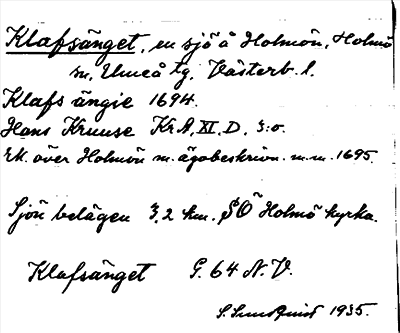 Klafsänget, en sjö å Holmön, Holmö
sn, Umeå tg. Västerb. l.
Klafs ängie 1694.
Hans Kruuse Kr.A. XI. D. 3:o.
Ek. över Holmön m. ägobeskrivn. m.m. 1695.
Sjön belägen 3,2 km. SO Holmö kyrka.
Klafsänget G. 64 N.V.
S. Sundquist 1935.